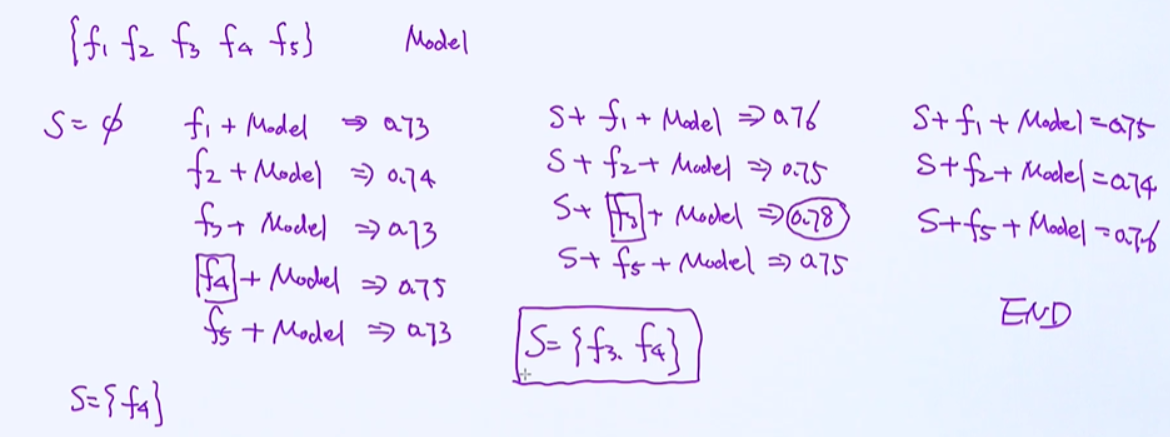 {f₁ f₂ f₃ f₄ f₅} Model
S = ∅
f₁ + Model ⇒ 0.73
f₂ + Model ⇒ 0.74
f₃ + Model ⇒ 0.73
f₄ + Model ⇒ 0.75
f₅ + Model ⇒ 0.73
S={f₄}
S + f₁ + Model ⇒ 0.76
S + f₂ + Model ⇒ 0.75
S + f₃ + Model ⇒ 0.78
S + f₅ + Model ⇒ 0.75
S= {f₃. f₄}
S + f₁ + Model = 0.75
S + f₂ + Model = 0.74
S + f₅ + Model = 0.76
END